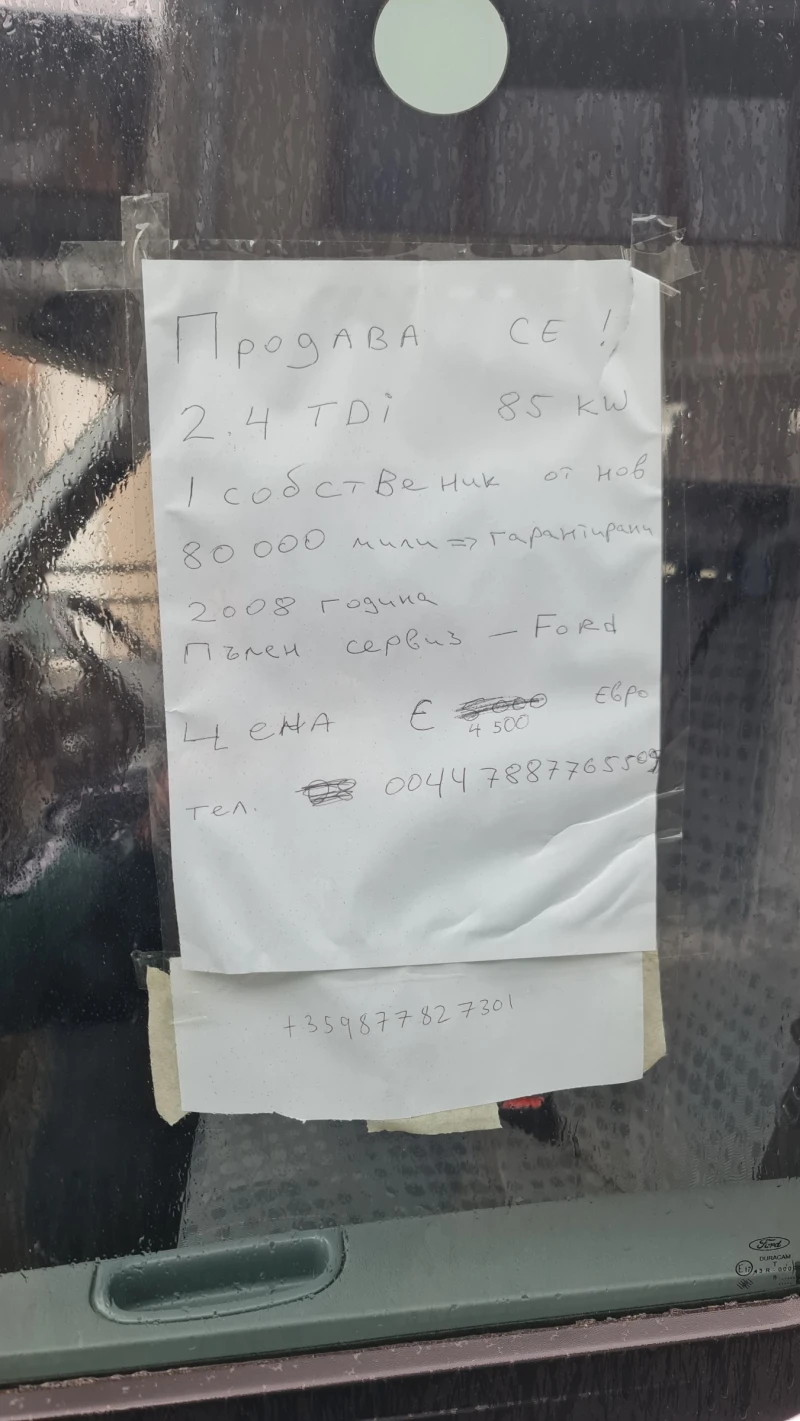 Продава се!
2.4 TDi 85 KW
1 собственик от нов
80 000 мили => гарантирани
2008 година
Пълен сервиз - Ford
Цена € 4 500 Евро
тел. 00447887765509
+359877827301
Ford
DURACAM